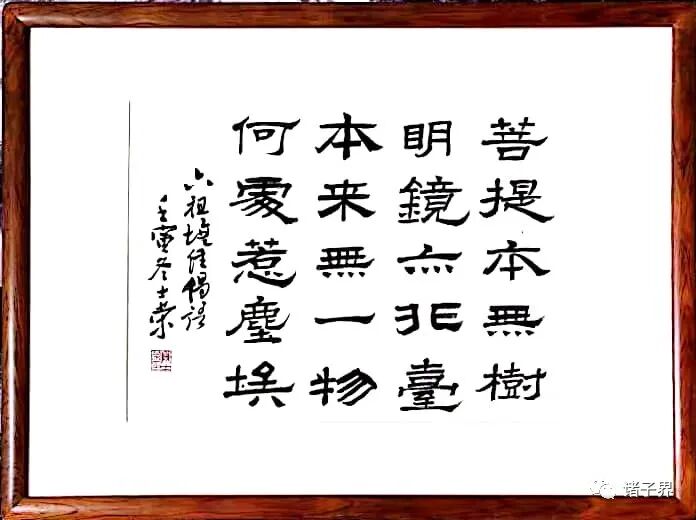 菩提本無樹
明鏡亦非臺
本来無一物
何處惹塵埃
六祖壇經偈語
壬寅冬士荣
诸子界